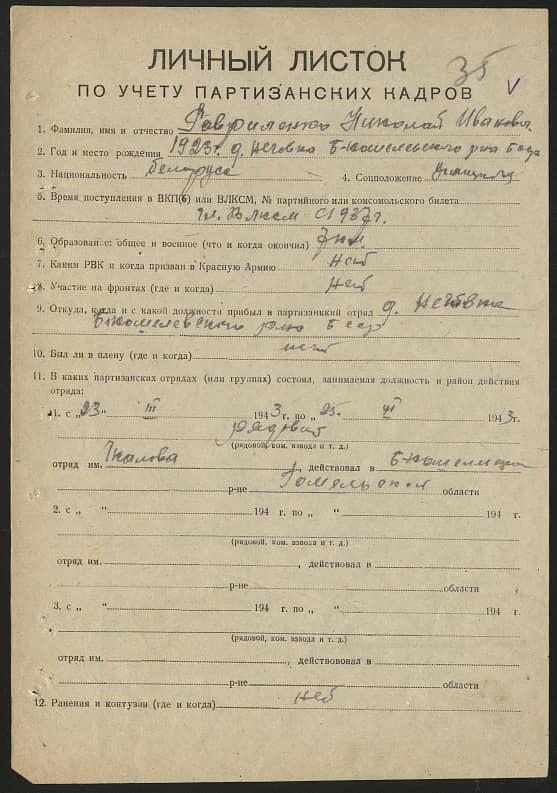 35 V
ЛИЧНЫЙ ЛИСТОК
ПО УЧЕТУ ПАРТИЗАНСКИХ КАДРОВ
1. Фамилия, имя и отчество Гавриленко Николай Иванович
2. Год и место рождения 1923 г. д. р-на Б С С Р
3. Национальность белорусс 4. Соцположение
5. Время поступления в ВКП(б) или ВЛКСМ, № партийного или комсомольского билета
чл. ВЛКСМ с 1937 г.
6. Образование: общее и военное (что и когда окончил) 7 кл.
7. Каким РВК и когда призван в Красную Армию нет
8. Участие на фронтах (где и когда) нет
9. Откуда, когда и с какой должности прибыл в партизанский отряд д.
р-на Б С С Р
10. Был ли в плену (где и когда) нет
11. В каких партизанских отрядах (или группах) состоял, занимаемая должность и район действия
отряда:
1. с „23“ III 1943 г. по „25“ VI 1943 г.
рядовой
(рядовой, ком. взвода и т. д.)
отряд им. Чкалова, действовал в
р-не Гомельской области
2. с „ “ 194 г. по „ “ 194 г.
(рядовой, ком. взвода и т. д.)
отряд им. , действовал в
р-не области
3. с „ “ 194 г. по „ “ 194 г.
(рядовой, ком. взвода и т. д.)
отряд им. , действововал в
р-не области
12. Ранения и контузии (где и когда) нет